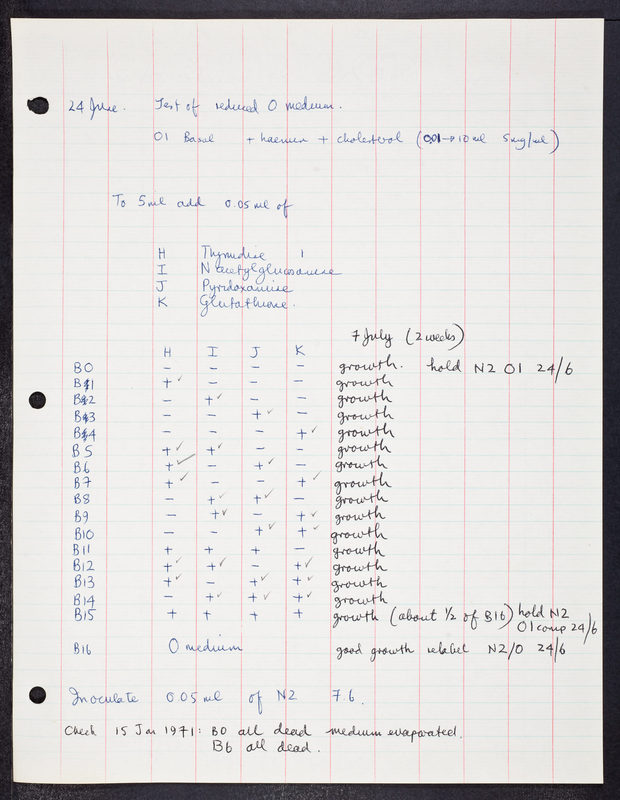 24 June. Test of reduced O medium.
O1 Basal + haemin + cholesterol (0.01 → 10 ml 5 mg/ml)
To 5 ml add 0.05 ml of
H Thymidine 1
I N acetylglucosamine
J Pyridoxamine
K Glutathione.
7 July (2 weeks)
H I J K
B0 – – – – growth. hold N2 O1 24/6
B1 +✓ – – – growth
B2 – +✓ – – growth
B3 – – +✓ – growth
B4 – – – +✓ growth
B5 +✓ +✓ – – growth
B6 +✓ – +✓ – growth
B7 +✓ – – +✓ growth
B8 – +✓ +✓ – growth
B9 – +✓ – +✓ growth
B10 – – +✓ +✓ growth
B11 + + + – growth
B12 +✓ +✓ – +✓ growth
B13 +✓ – +✓ +✓ growth
B14 – +✓ +✓ +✓ growth
B15 + + + + growth (about 1/2 of B16) hold N2
O1 comp 24/6
B16 O medium good growth relabel N2/O 24/6
Inoculate 0.05 ml of N2 7.6.
Check 15 Jan 1971: B0 all dead medium evaporated.
B6 all dead.